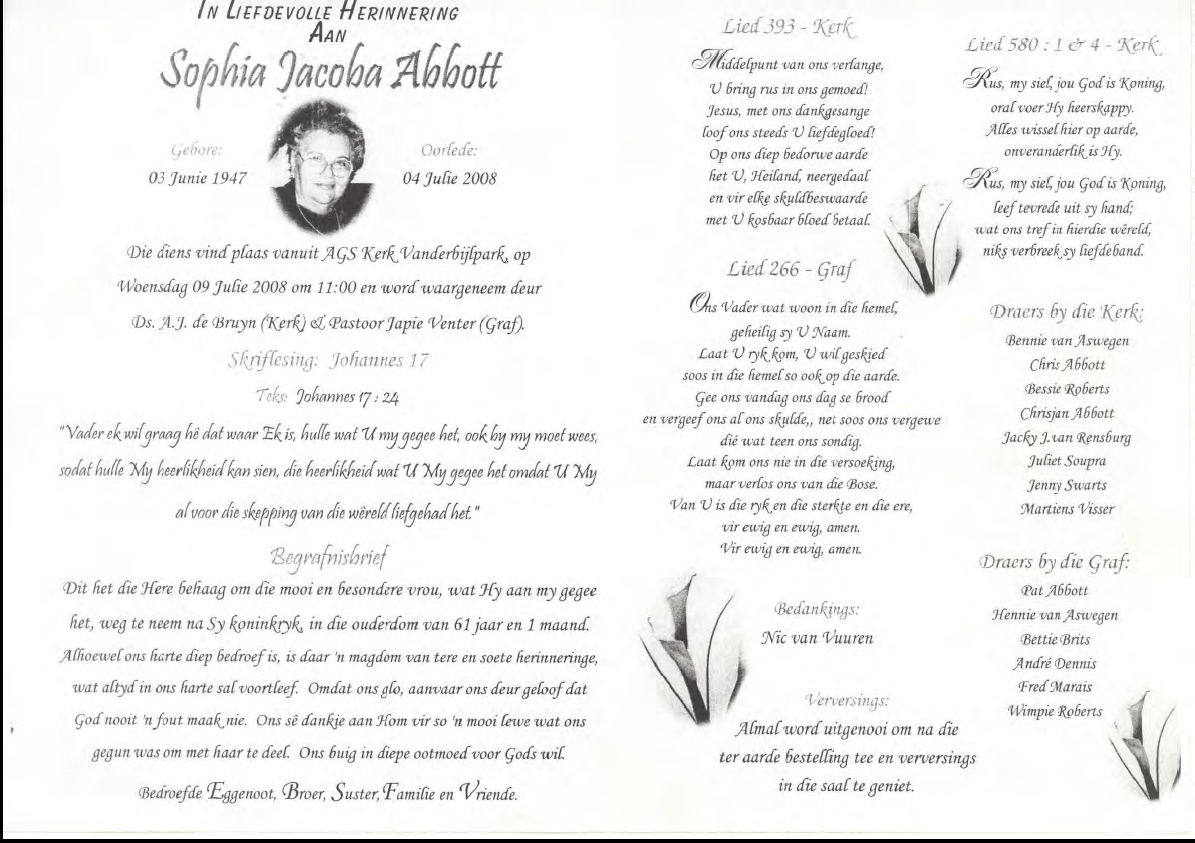 IN LIEFDEVOLLE HERINNERING
AAN
Sophia Jacoba Abbott
Gebore:
03 Junie 1947
Oorlede:
04 Julie 2008
Die diens vind plaas vanuit AGS Kerk Vanderbijlpark, op
Woensdag 09 Julie 2008 om 11:00 en word waargeneem deur
Ds. A.J. de Bruyn (Kerk) & Pastoor Japie Venter (Graf).
Skriflesing: Johannes 17
Teks: Johannes 17 : 24
"Vader ek wil graag hê dat waar Ek is, hulle wat U my gegee het, ook by my moet wees,
sodat hulle My heerlikheid kan sien, die heerlikheid wat U My gegee het omdat U My
al voor die skepping van die wêreld liefgehad het."
Begrafnisbrief
Dit het die Here behaag om die mooi en besondere vrou, wat Hy aan my gegee
het, weg te neem na Sy koninkryk, in die ouderdom van 61 jaar en 1 maand.
Alhoewel ons harte diep bedroef is, is daar 'n magdom van tere en soete herinneringe,
wat altyd in ons harte sal voortleef. Omdat ons glo, aanvaar ons deur geloof dat
God nooit 'n fout maak nie. Ons sê dankie aan Hom vir so 'n mooi lewe wat ons
gegun was om met haar te deel. Ons buig in diepe ootmoed voor Gods wil.
Bedroefde Eggenoot, Broer, Suster, Familie en Vriende.
Lied 393 - Kerk
Middelpunt van ons verlange,
U bring rus in ons gemoed!
Jesus, met ons dankgesange
loof ons steeds U liefdegloed!
Op ons diep bedorwe aarde
het U, Heiland, neergedaal
en vir elke skuldbeswaarde
met U kosbaar bloed betaal.
Lied 266 - Graf
Ons Vader wat woon in die hemel,
geheilig sy U Naam.
Laat U ryk kom, U wil geskied
soos in die hemel so ook op die aarde.
Gee ons vandag ons dag se brood
en vergeef ons al ons skulde,, net soos ons vergewe
dié wat teen ons sondig.
Laat kom ons nie in die versoeking,
maar verlos ons van die Bose.
Van U is die ryk en die sterkte en die ere,
vir ewig en ewig, amen.
Vir ewig en ewig, amen.
Bedankings:
Nic van Vuuren
Verversings:
Almal word uitgenooi om na die
ter aarde bestelling tee en verversings
in die saal te geniet.
Lied 580 : 1 & 4 - Kerk
Rus, my siel, jou God is Koning,
oral voer Hy heerskappy.
Alles wissel hier op aarde,
onveranderlik is Hy.
Rus, my siel, jou God is Koning,
leef tevrede uit sy hand;
wat ons tref in hierdie wêreld,
niks verbreek sy liefdeband.
Draers by die Kerk:
Bennie van Aswegen
Chris Abbott
Bessie Roberts
Chrisjan Abbott
Jacky J.van Rensburg
Juliet Soupra
Jenny Swarts
Martiens Visser
Draers by die Graf:
Pat Abbott
Hennie van Aswegen
Bettie Brits
André Dennis
Fred Marais
Wimpie Roberts